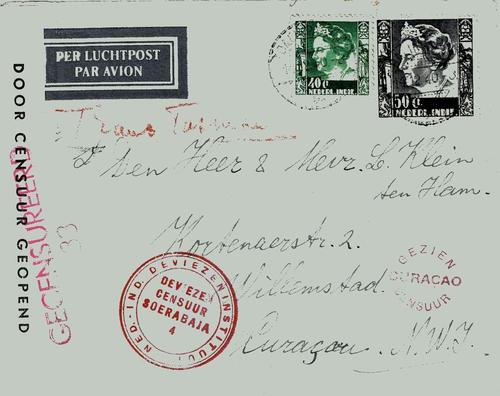 PER LUCHTPOST
PAR AVION
40 c.
NEDERL. INDIË
50 c.
NEDERL. INDIË
DOOR CENSUUR GEOPEND
GECENSUREERD
33
Den Heer & Mevr. L. Klein
ten Ham.
Kortenaerstr. 2.
Willemstad.
Curaçao. N.W.I.
NED.-IND. DEVIEZENINSTITUUT
DEVIEZEN
CENSUUR
SOERABAJA
4
GEZIEN
CURACAO
CENSUUR